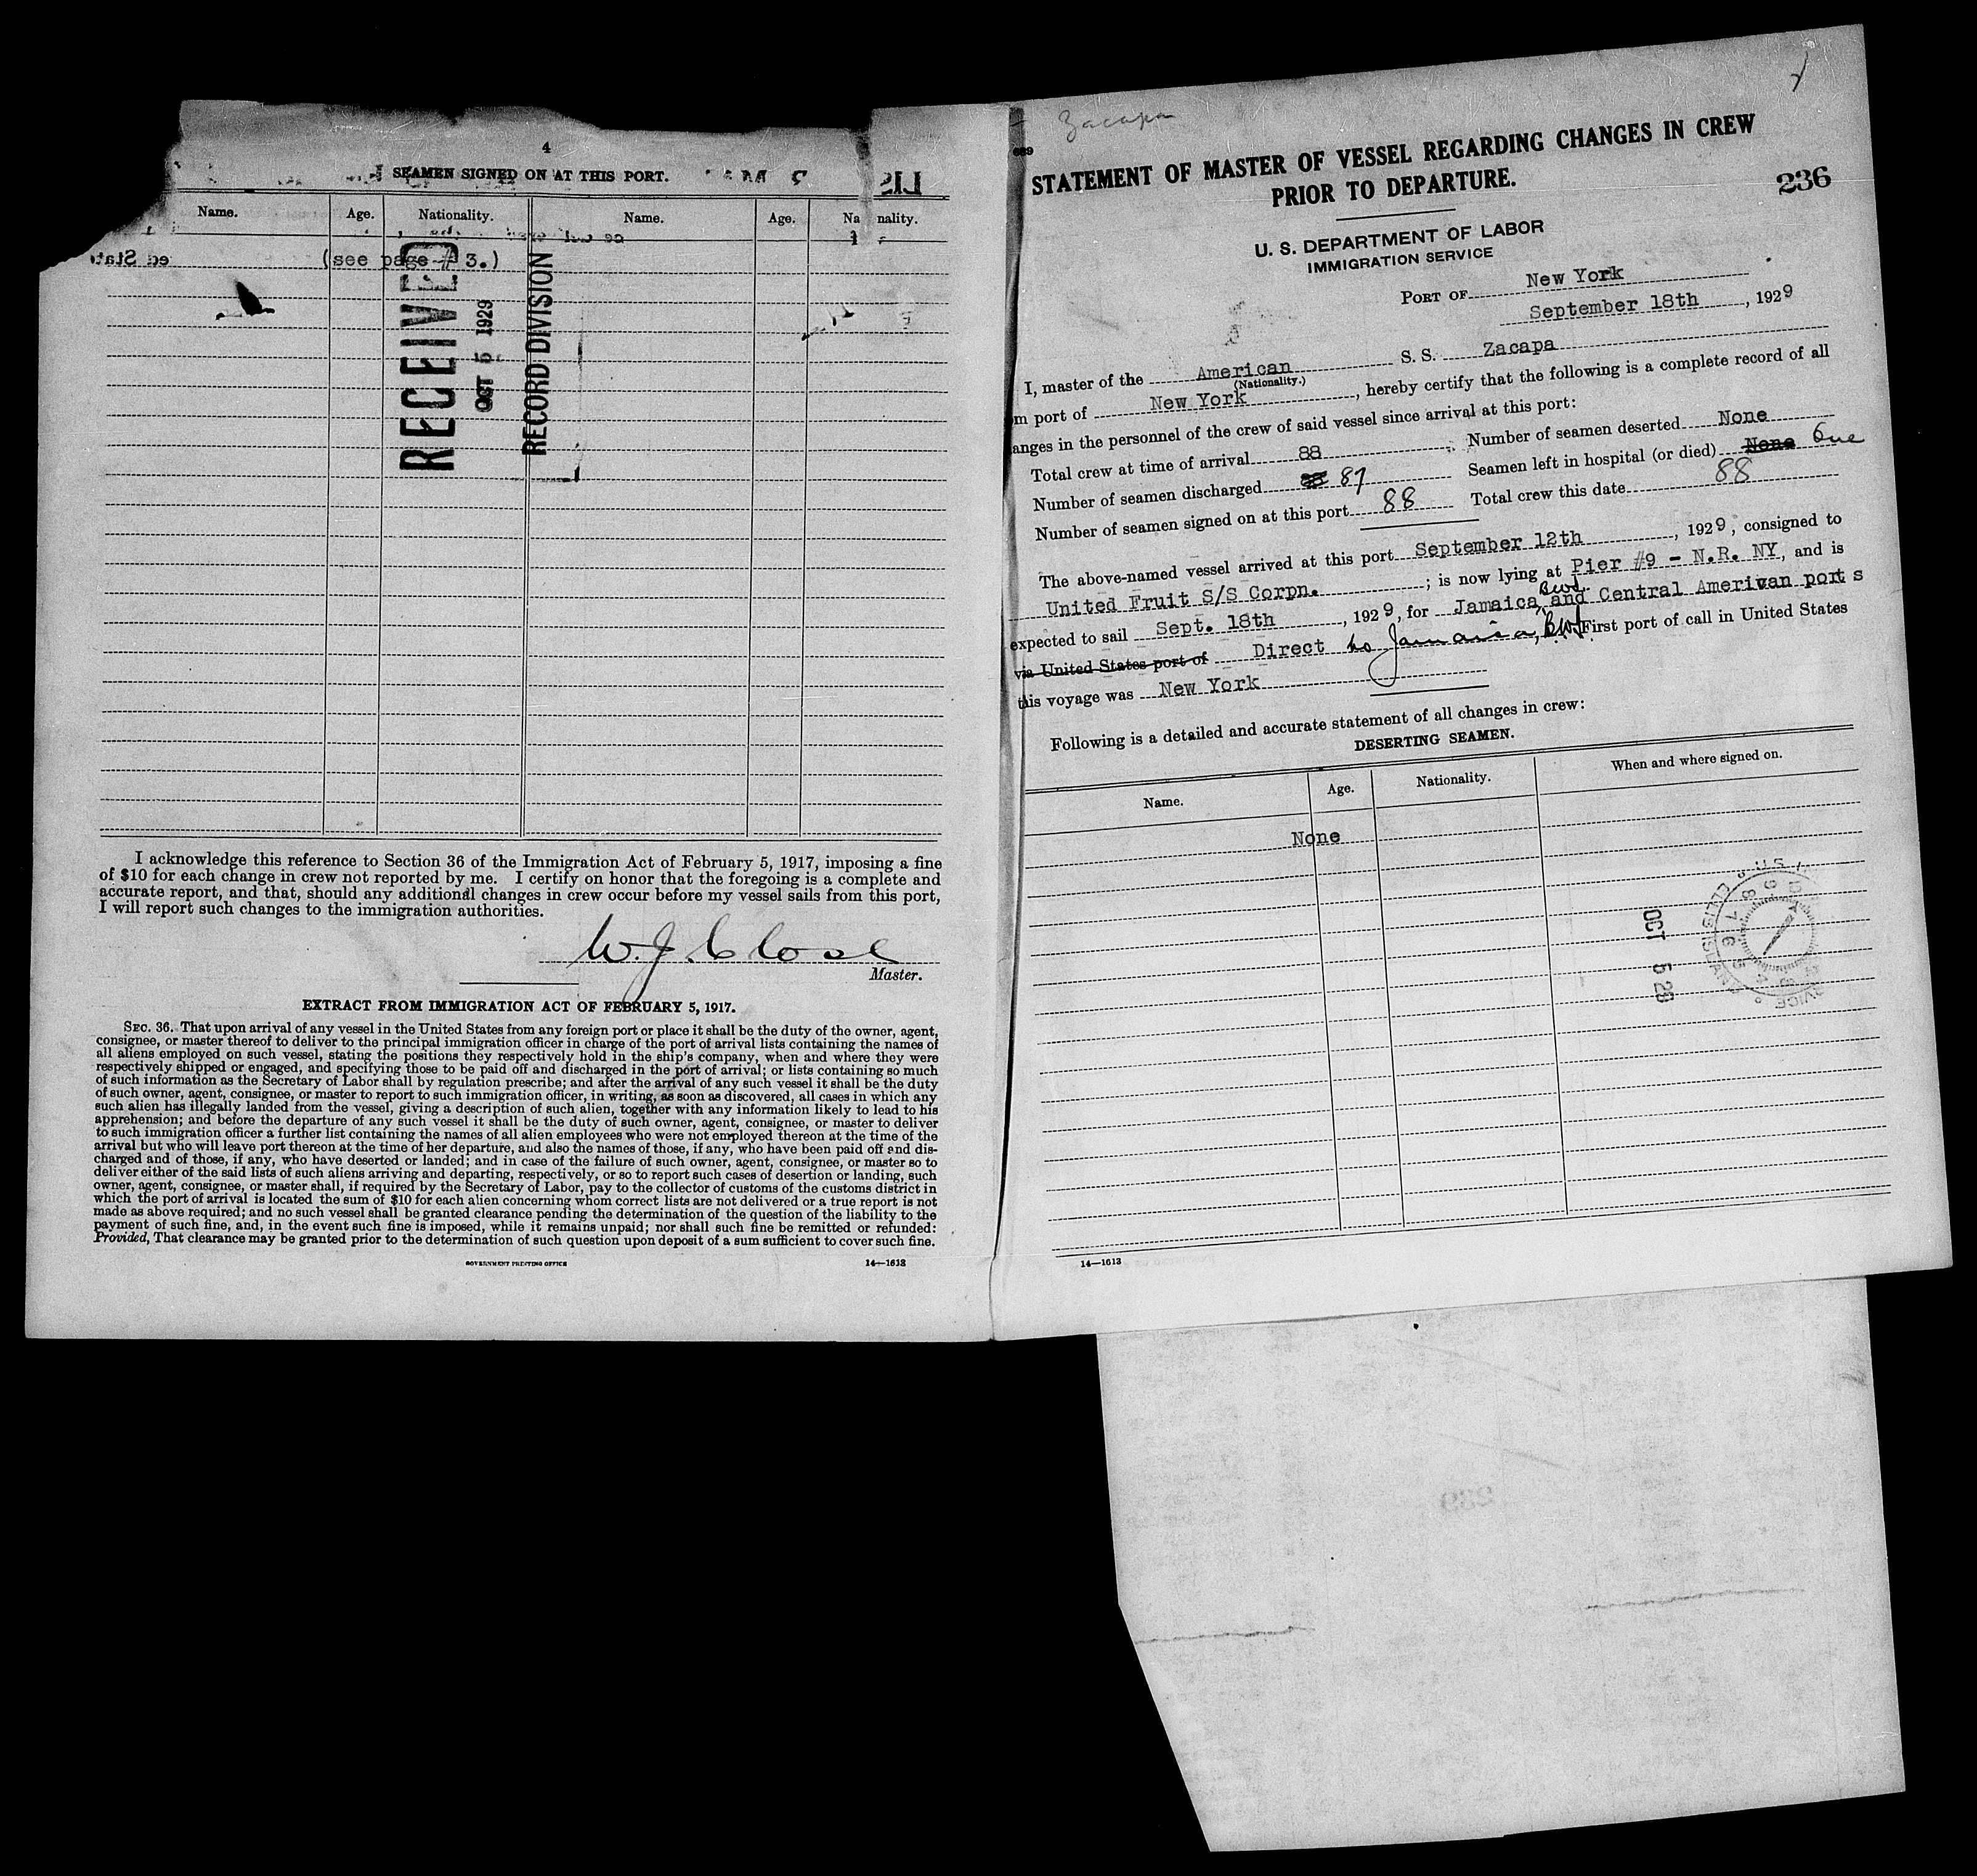 4
SEAMEN SIGNED ON AT THIS PORT.
Name. Age. Nationality. Name. Age. Na nality.
(see page # 3.)
RECEIVED
OCT 5 1929
RECORD DIVISION
I acknowledge this reference to Section 36 of the Immigration Act of February 5, 1917, imposing a fine
of $10 for each change in crew not reported by me. I certify on honor that the foregoing is a complete and
accurate report, and that, should any additional changes in crew occur before my vessel sails from this port,
I will report such changes to the immigration authorities.
W. J. Close
Master.
EXTRACT FROM IMMIGRATION ACT OF FEBRUARY 5, 1917.
SEC. 36. That upon arrival of any vessel in the United States from any foreign port or place it shall be the duty of the owner, agent,
consignee, or master thereof to deliver to the principal immigration officer in charge of the port of arrival lists containing the names of
all aliens employed on such vessel, stating the positions they respectively hold in the ship's company, when and where they were
respectively shipped or engaged, and specifying those to be paid off and discharged in the port of arrival; or lists containing so much
of such information as the Secretary of Labor shall by regulation prescribe; and after the arrival of any such vessel it shall be the duty
of such owner, agent, consignee, or master to report to such immigration officer, in writing, as soon as discovered, all cases in which any
such alien has illegally landed from the vessel, giving a description of such alien, together with any information likely to lead to his
apprehension; and before the departure of any such vessel it shall be the duty of such owner, agent, consignee, or master to deliver
to such immigration officer a further list containing the names of all alien employees who were not employed thereon at the time of the
arrival but who will leave port thereon at the time of her departure, and also the names of those, if any, who have been paid off and dis-
charged and of those, if any, who have deserted or landed; and in case of the failure of such owner, agent, consignee, or master so to
deliver either of the said lists of such aliens arriving and departing, respectively, or so to report such cases of desertion or landing, such
owner, agent, consignee, or master shall, if required by the Secretary of Labor, pay to the collector of customs of the customs district in
which the port of arrival is located the sum of $10 for each alien concerning whom correct lists are not delivered or a true report is not
made as above required; and no such vessel shall be granted clearance pending the determination of the question of the liability to the
payment of such fine, and, in the event such fine is imposed, while it remains unpaid; nor shall such fine be remitted or refunded:
Provided, That clearance may be granted prior to the determination of such question upon deposit of a sum sufficient to cover such fine.
GOVERNMENT PRINTING OFFICE 14—1613
Zacapa
689
STATEMENT OF MASTER OF VESSEL REGARDING CHANGES IN CREW
PRIOR TO DEPARTURE.
236
U. S. DEPARTMENT OF LABOR
IMMIGRATION SERVICE
PORT OF New York
September 18th, 1929
I, master of the American S. S. Zacapa
(Nationality.)
m port of New York, hereby certify that the following is a complete record of all
anges in the personnel of the crew of said vessel since arrival at this port:
Total crew at time of arrival 88 Number of seamen deserted None
Number of seamen discharged 88 87 Seamen left in hospital (or died) None One
Number of seamen signed on at this port 88 Total crew this date 88
The above-named vessel arrived at this port September 12th, 1929, consigned to
United Fruit S/S Corpn. ; is now lying at Pier #9 - N.R. NY, and is
expected to sail Sept. 18th, 1929, for Jamaica and Central American ports
via United States port of Direct to Jamaica, B.W.I. First port of call in United States
this voyage was New York
Following is a detailed and accurate statement of all changes in crew:
DESERTING SEAMEN.
Name. Age. Nationality. When and where signed on.
None
OCT 5 29
14—1613